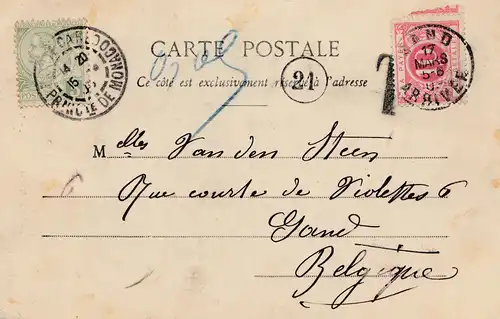 CARTE POSTALE
Ce côté est exclusivement réservé à l'adresse
MONTE CARLO
14 20
15
PRINCIPTÉ DE MONACO
21
GAND
17
MARS
5-6
ARRIVÉE
A PAYER
T
Melles Van den Steen
Rue courte de Violettes 6
Gand
Belgique